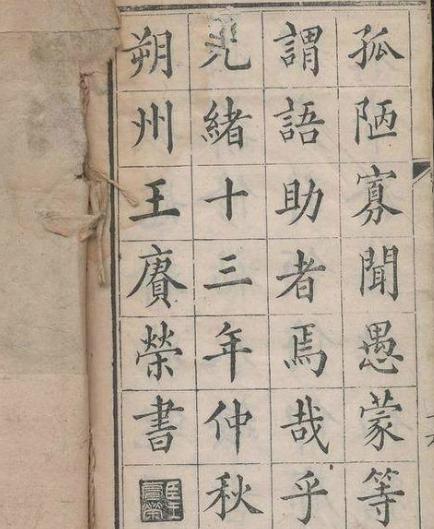 孤陋寡聞愚蒙等
謂語助者焉哉乎
光緒十三年仲秋
朔州王賡榮書
臣王賡榮